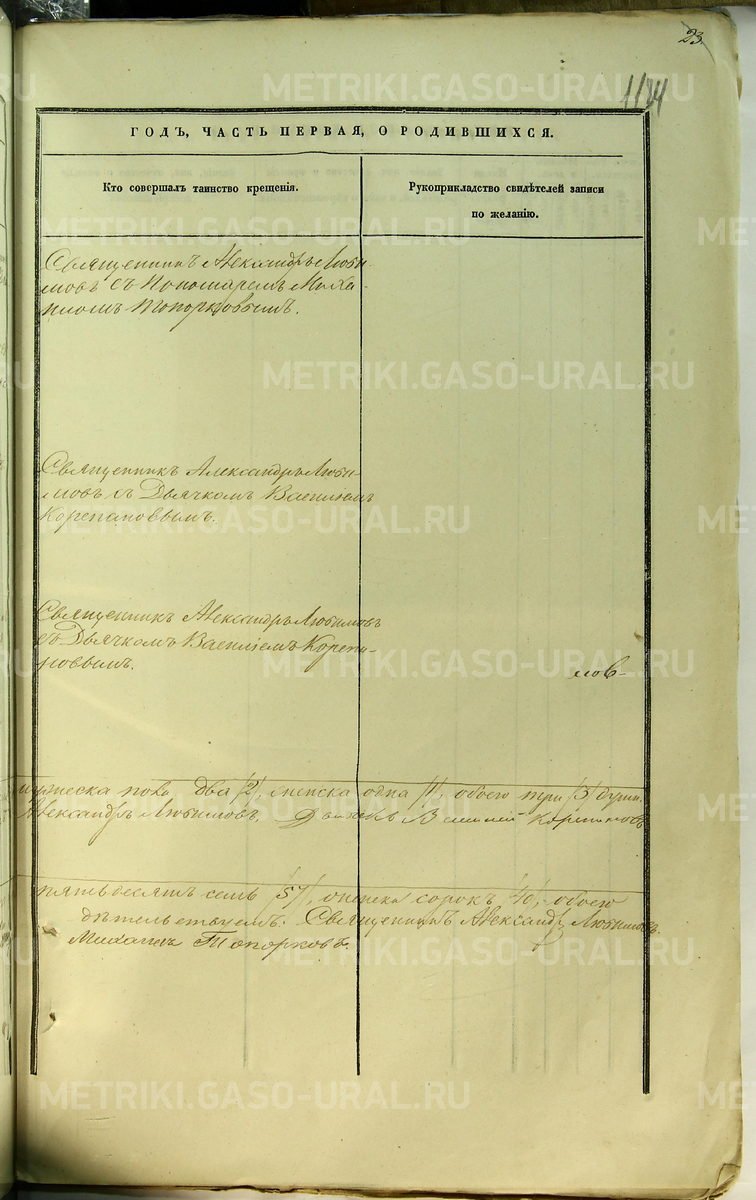 23.
1184
METRIKI.GASO-URAL.RU
ГОДЪ, ЧАСТЬ ПЕРВАЯ, О РОДИВШИХСЯ.
Кто совершалъ таинство крещенія.
Рукоприкладство свидѣтелей записи
по желанію.
Священникъ Александръ Люби-
мовъ съ Пономаремъ Миха-
иломъ Топорковымъ.
Священникъ Александръ Люби-
мовъ съ Дьячкомъ Василіемъ
Корепановымъ.
Священникъ Александръ Любимовъ
съ Дьячкомъ Василіемъ Корепа-
новымъ.
мов-
мужеска пола два /2/, женска одна /1/, обоего три /3/ души.
Александръ Любимовъ. Дьячекъ Василій Корепановъ
пятьдесятъ семь /57/, женска сорокъ /40/, обоего
дѣтельствуемъ. Священникъ Александръ Любимовъ.
Михаилъ Топорковъ.